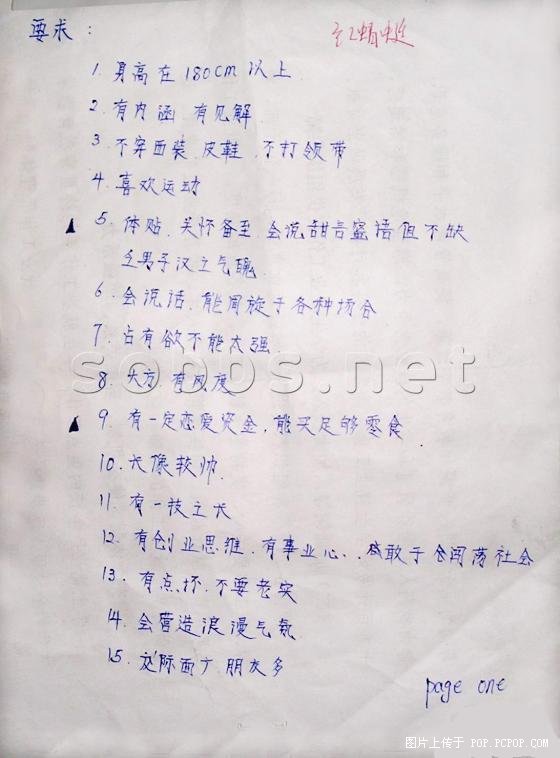 要求：
红蜻蜓
1. 身高在180cm以上
2. 有内涵 有见解
3. 不穿西装、皮鞋、不打领带
4. 喜欢运动
▲ 5. 体贴、关怀备至、会说甜言蜜语但不缺
乏男子汉之气魄
6. 会说话、能周旋于各种场合
7. 占有欲不能太强
sobds.net
8. 大方、有风度
▲ 9. 有一定恋爱资金，能买足够零食
10. 长像较帅
11. 有一技之长
12. 有创业思维、有事业心、敢于闯荡社会
13. 有点坏、不要老实
14. 会营造浪漫气氛
15. 交际面广、朋友多
page one
图片上传于 POP.PCPOP.COM